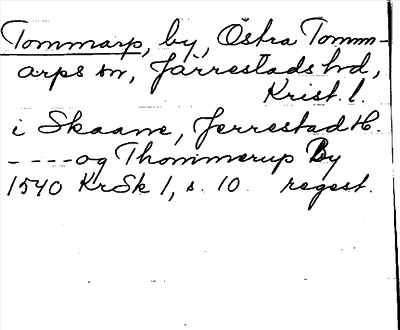 Tommarp, by, Östra Tomm-
arps sn, Järrestads hd,
Krist. l.
i Skaane, Jerrestad H.
- - - - og Thommerup By
1540 KrSk 1, s. 10 regest.